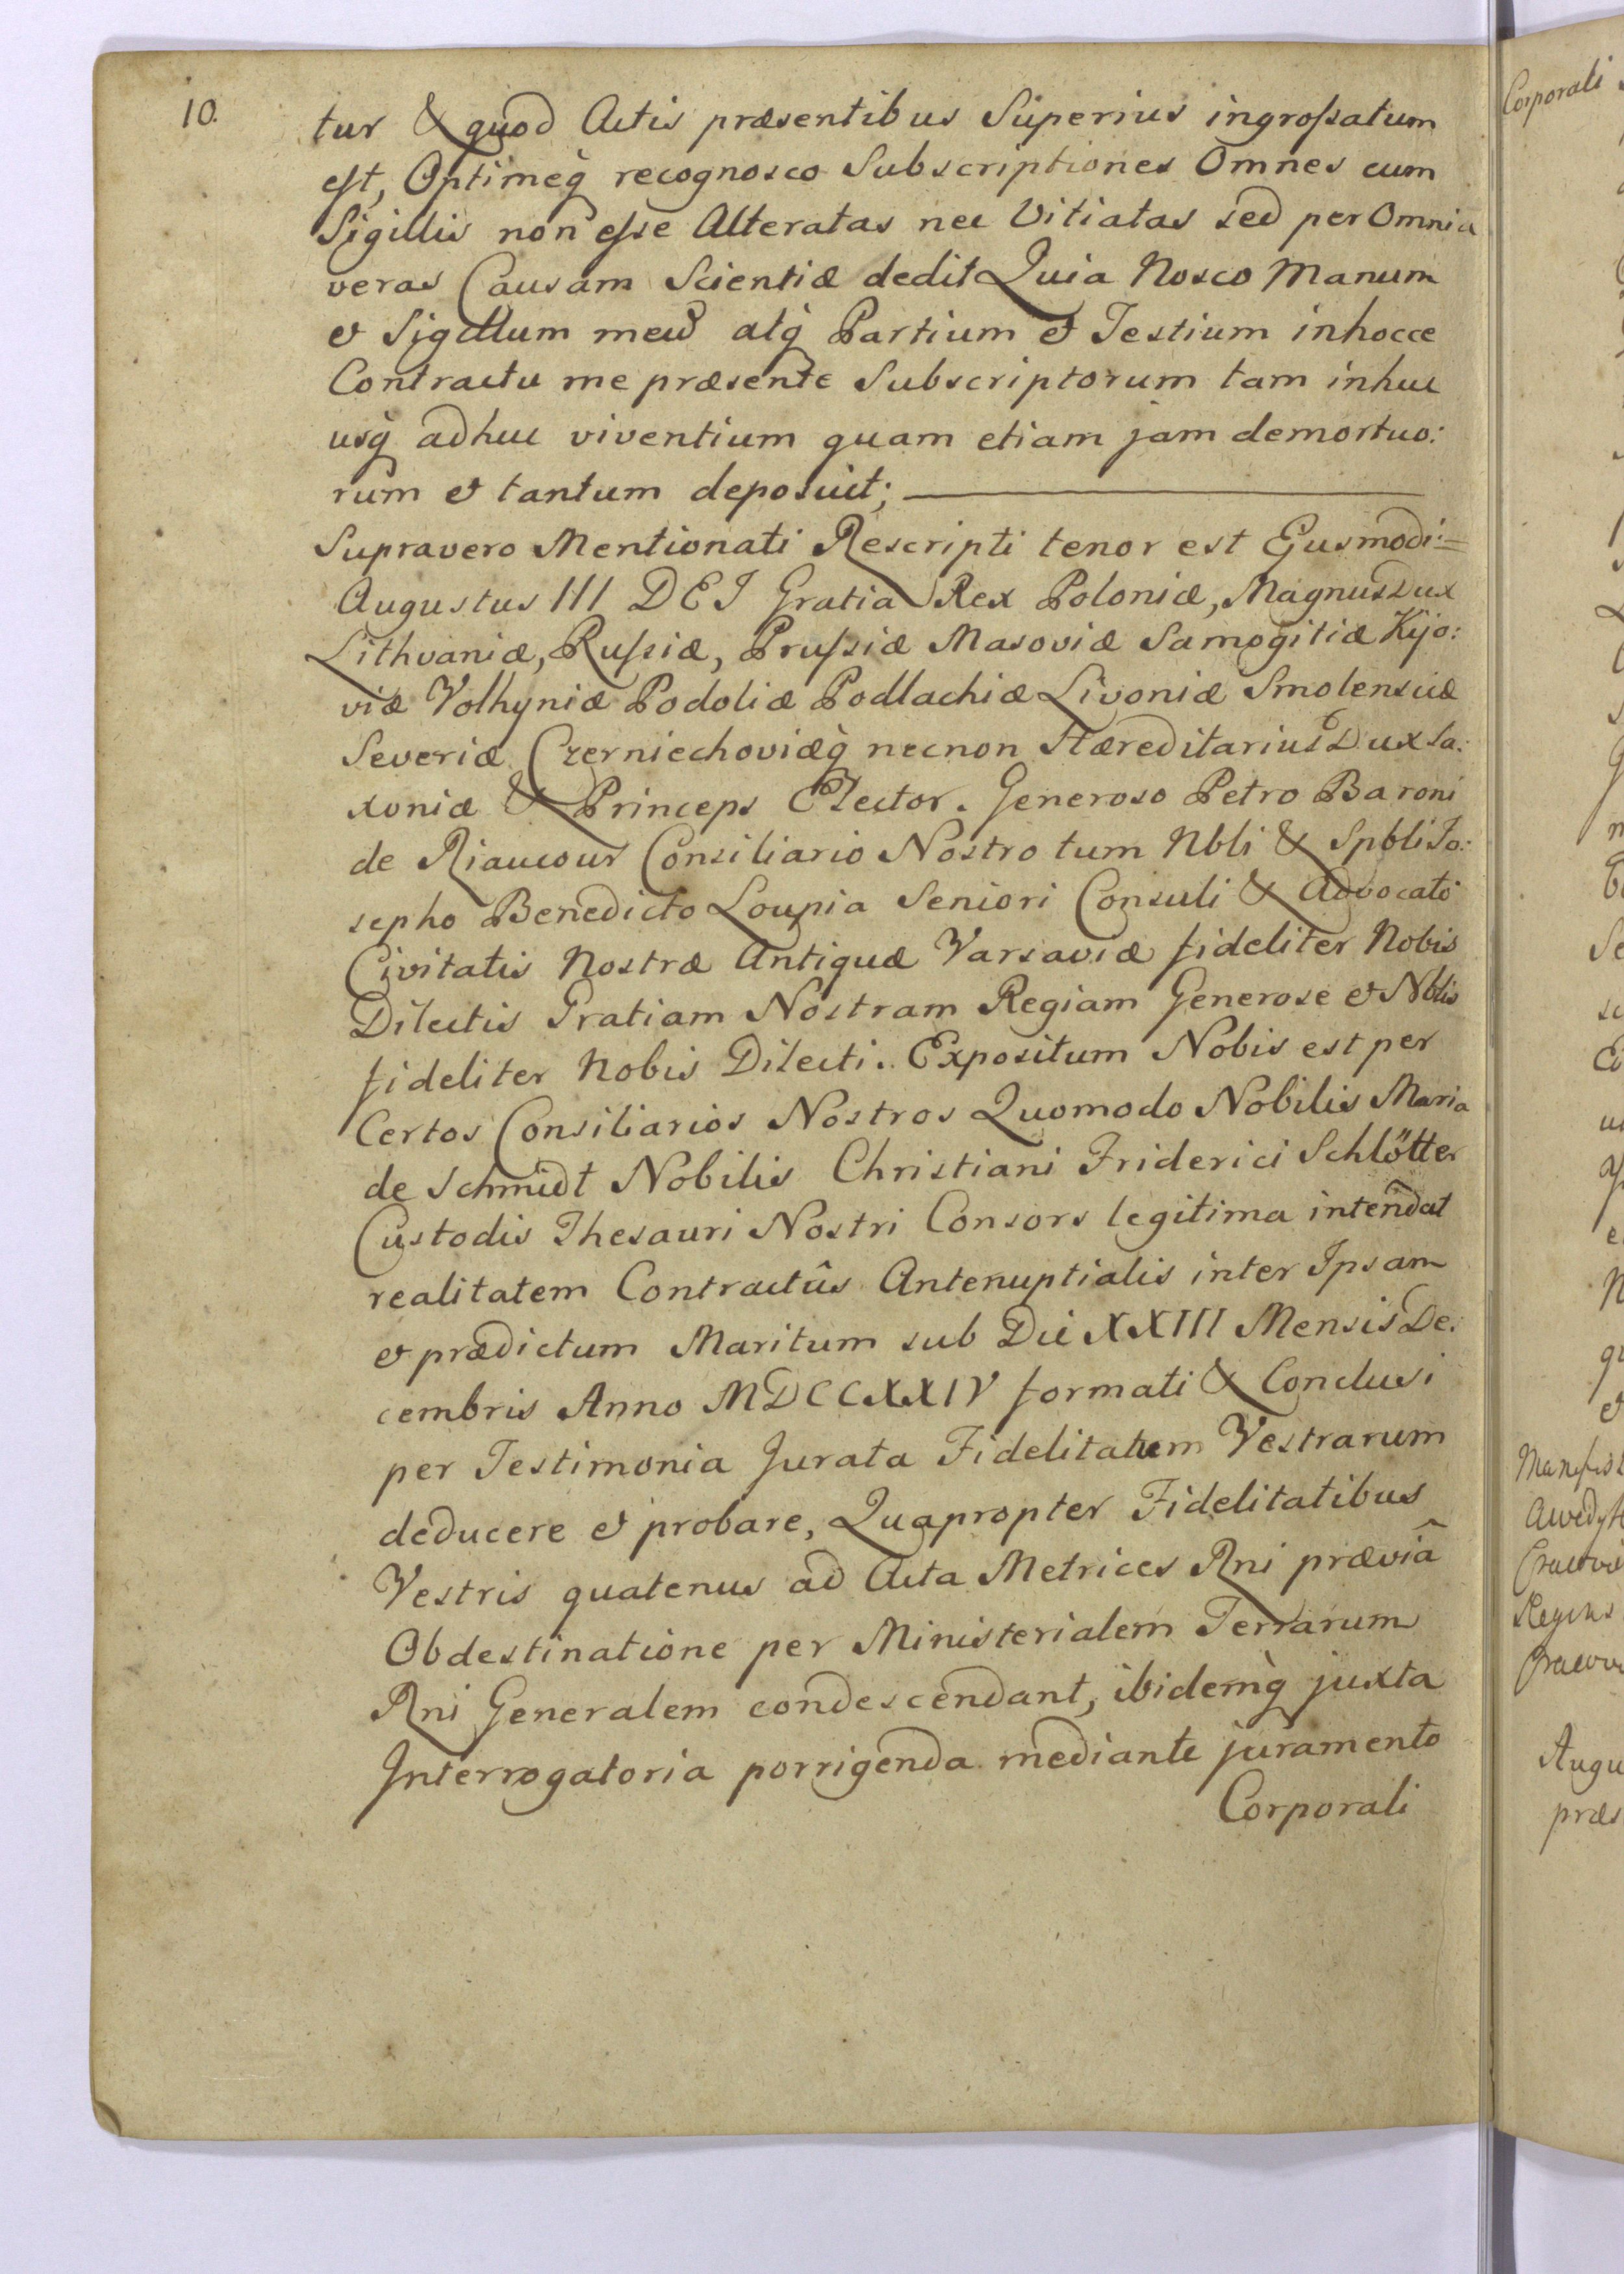 10.
tur & quod Actis præsentibus Superius ingroſsatum
eſt, Optimeq̀ recognosco Subscriptiones Omnes cum
Sigillis non eſse Alteratas nec Vitiatas sed per Omnia
veras Causam Scientiæ dedit Quia Nosco Manum
et Sigillum meū atq̀ Partium et Testium inhocce
Contractu me præsente Subscriptorum tam inhuc
usq̀ adhuc viventium quam etiam jam demortuo:
rum et tantum deposuit;
Supravero Mentionati Rescripti tenor est Ejusmodi:=
Augustus III DEI Gratia Rex Poloniæ, Magnus Dux
Lithvaniæ, Ruſsiæ, Pruſsiæ Masoviæ Samogitiæ Kijo:
viæ Volhyniæ Podoliæ Podlachiæ Livoniæ Smolensciæ
Severiæ Czerniechoviæq̀ necnon Hæreditarius Dux Sa:
xoniæ & Princeps Elector. Generoso Petro Baroni
de Riaucour Consiliario Nostro tum Nbli & Spbli Jo:
sepho Benedicto Loupia Seniori Consuli & Advocato
Civitatis Nostræ Antiquæ Varsaviæ fideliter Nobis
Dilectis Gratiam Nostram Regiam Generose et Nblis
fideliter Nobis Dilecti. Expositum Nobis est per
Certos Consiliarios Nostros Quomodo Nobilis Maria
de Schmidt Nobilis Christiani Friderici Schlötter
Custodis Thesauri Nostri Consors legitima intendat
realitatem Contractûs Antenuptialis inter Ipsam
et prædictum Maritum sub Die XXIII Mensis De:
cembris Anno MDCCXXIV formati & Conclusi
per Testimonia Jurata Fidelitatum Vestrarum
deducere et probare, Quapropter Fidelitatibus
Vestris quatenus ad Acta Metrices Rni præviâ
Obdestinatione per Ministerialem Terrarum
Rni Generalem condescendant, ibidemq̀ juxta
Interrogatoria porrigenda mediante juramento
Corporali
Corporali